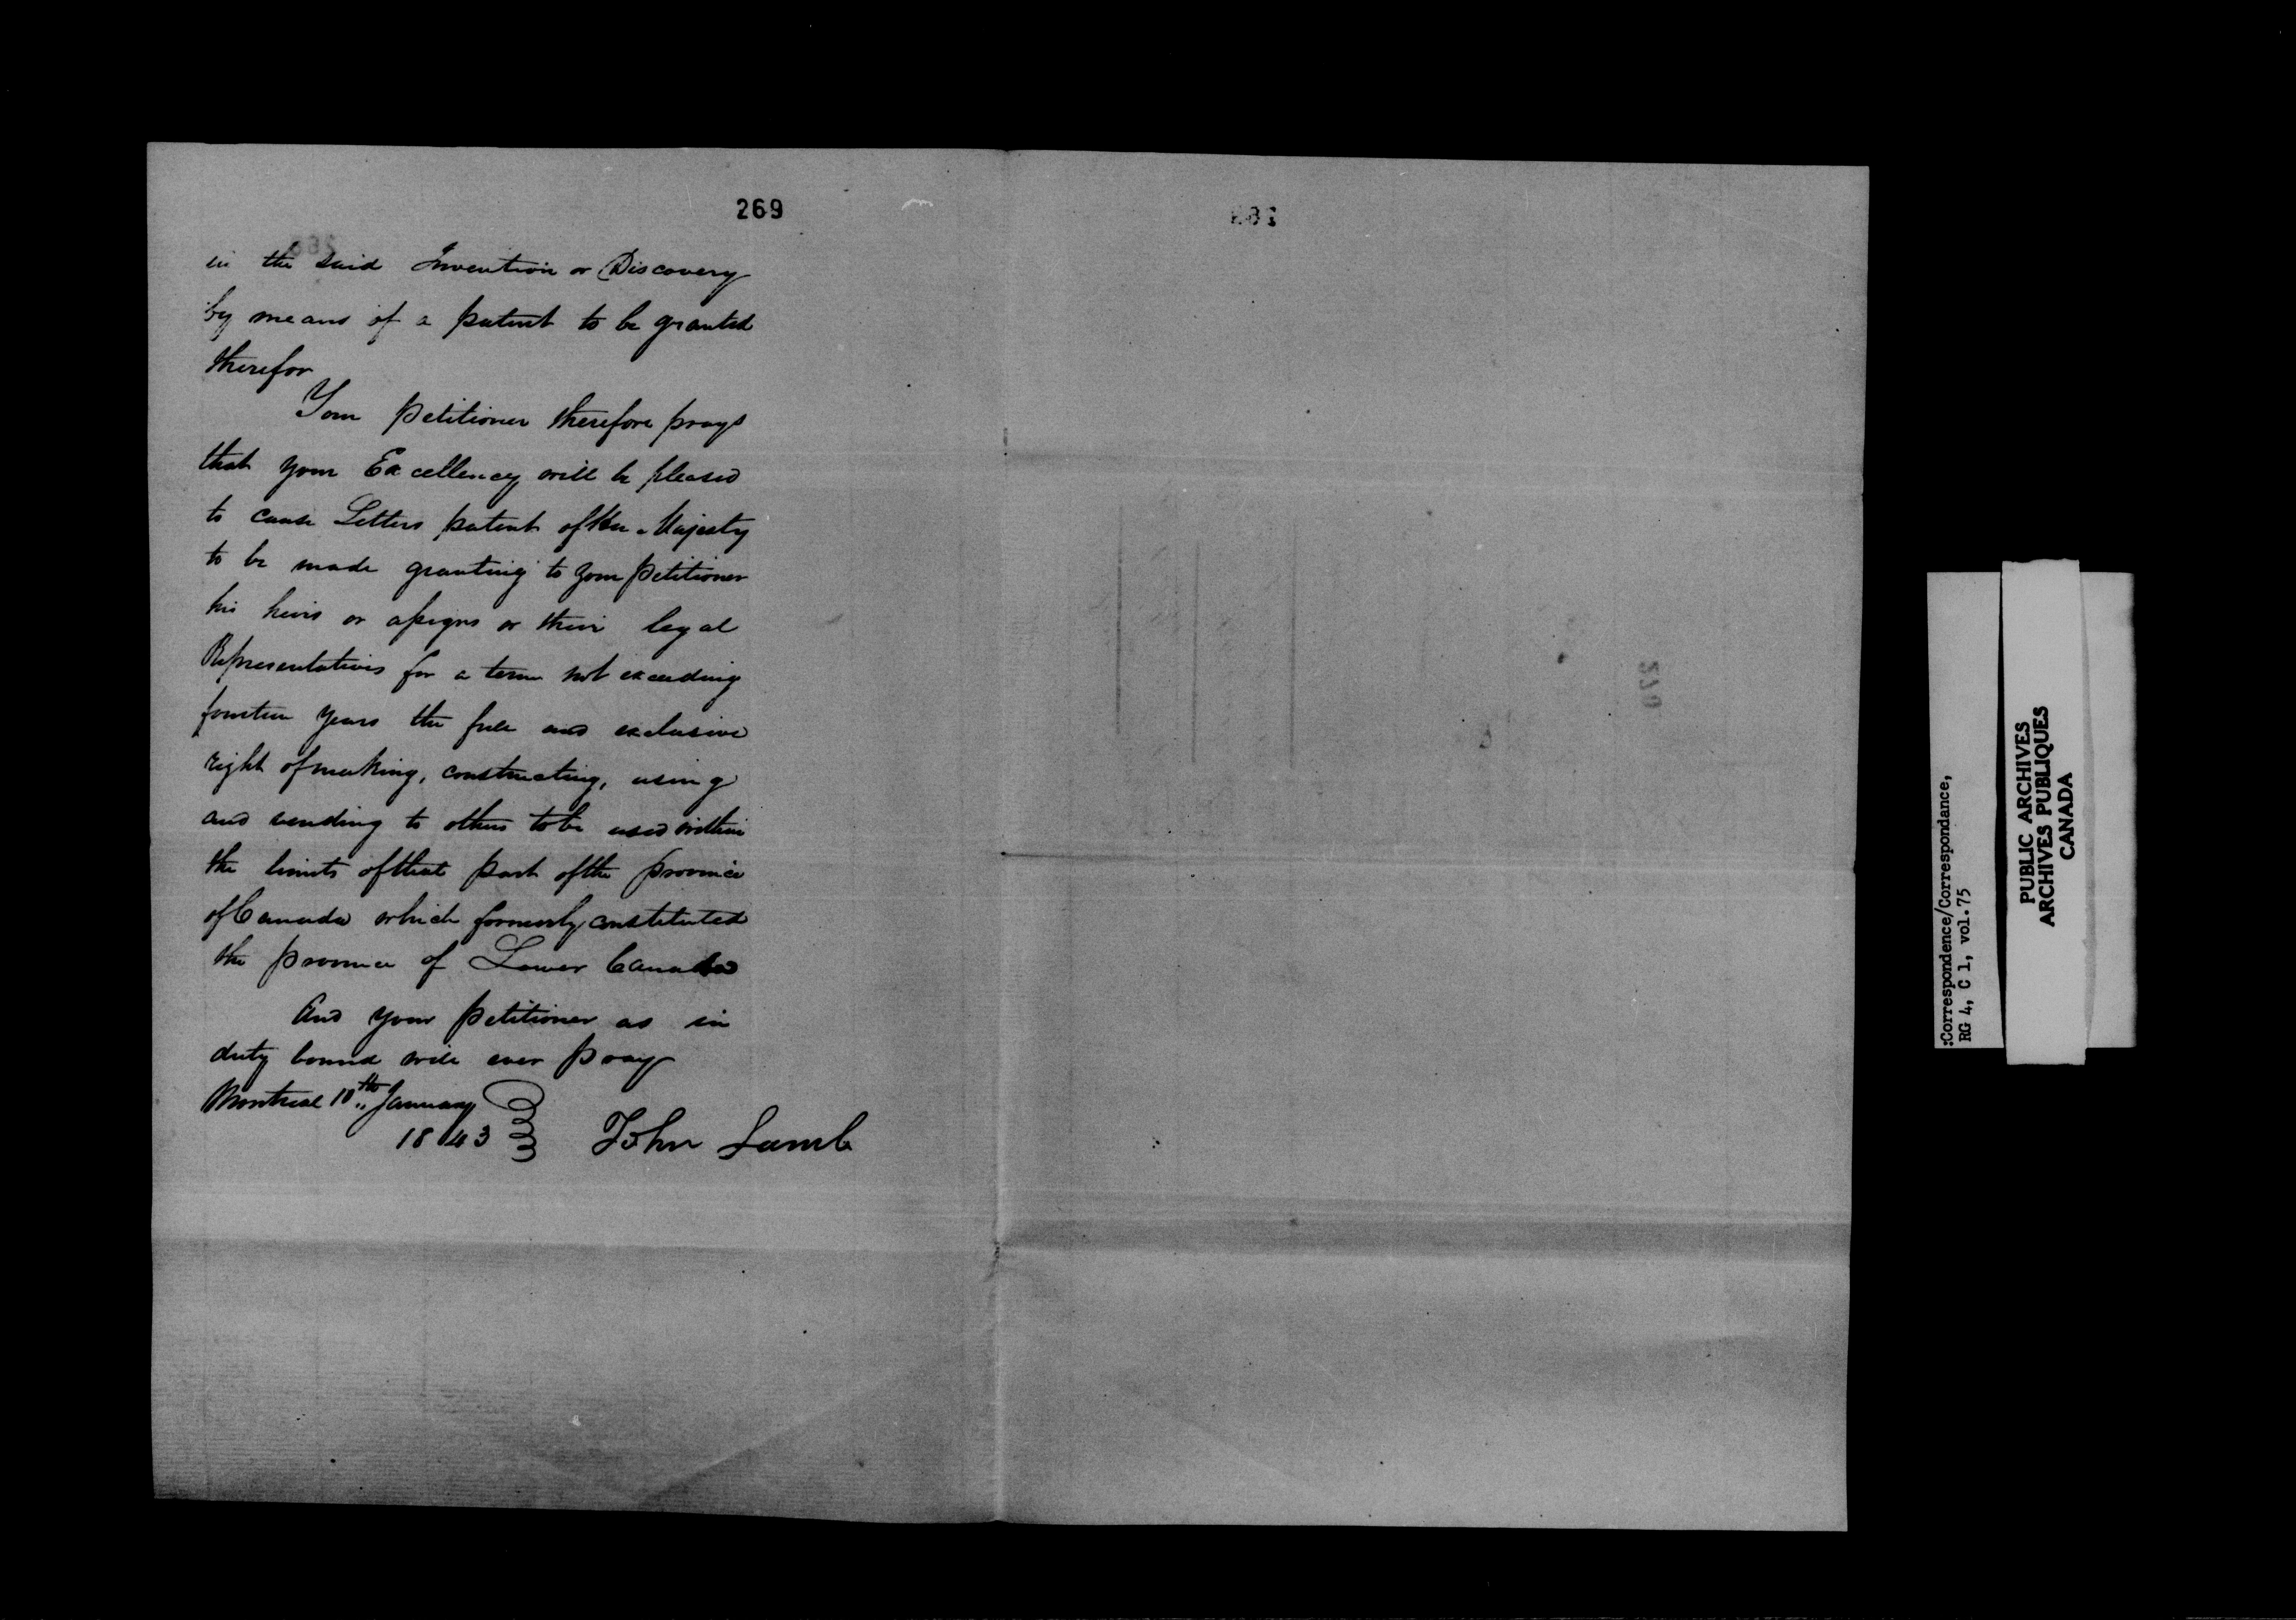 269
in the said Invention or Discovery
by means of a patent to be granted
therefor
Your Petitioner therefore prays
that your Excellency will be pleased
to cause Letters patent of Her Majesty
to be made granting to your petitioner
his heirs or assigns or their legal
Representatives for a term not exceeding
fourteen years the free and exclusive
right of making, constructing, using
and vending to others to be used within
the limits of that part of the province
of Canada which formerly constituted
the province of Lower Canada
And your petitioner as in
duty bound will ever pray
Montreal 10th January
1843 John Lamb
:Correspondence/Correspondance,
RG 4, C 1, vol.75
PUBLIC ARCHIVES
ARCHIVES PUBLIQUES
CANADA